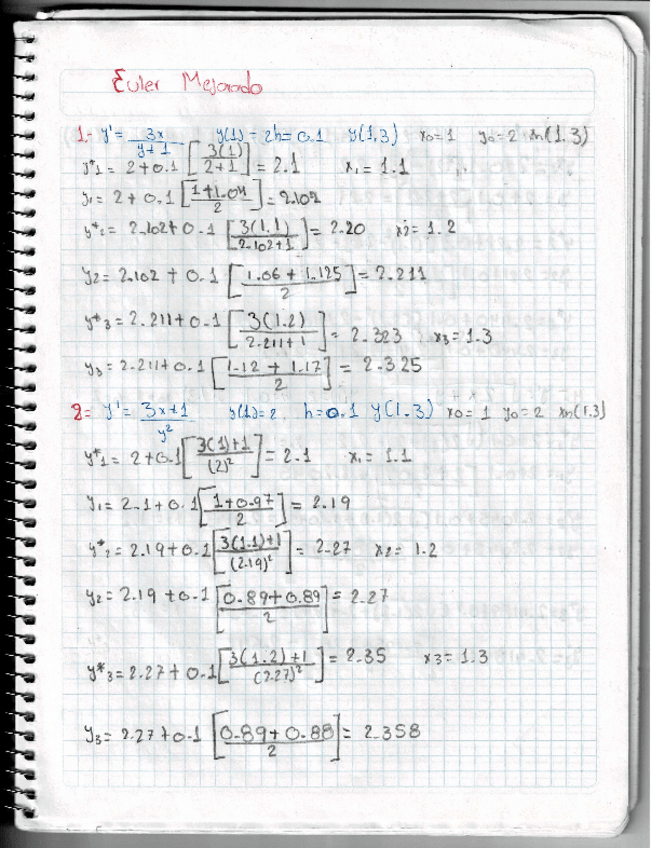 Euler Mejorado
1.- y' = 3x/y+1 y(1) = 2 h=0.1 y(1.3) x0=1 y0=2 xn(1.3)
y*1 = 2+0.1 [3(1)/2+1] = 2.1 x1 = 1.1
y1 = 2+0.1 [1+1.04/2] = 2.102
y*2 = 2.102+0.1 [3(1.1)/2.102+1] = 2.20 x2 = 1.2
y2 = 2.102 + 0.1 [1.06 + 1.125/2] = 2.211
y*3 = 2.211+0.1 [3(1.2)/2.211+1] = 2.323 x3 = 1.3
y3 = 2.211+0.1 [1.12 + 1.17/2] = 2.325
2= y' = 3x+1/y² y(1)=2 h=0.1 y(1.3) x0=1 y0=2 xn(1.3)
y*1 = 2+0.1 [3(1)+1/(2)²] = 2.1 x1 = 1.1
y1 = 2.1+0.1 [1+0.97/2] = 2.19
y*2 = 2.19+0.1 [3(1.1)+1/(2.19)²] = 2.27 x2 = 1.2
y2 = 2.19 +0.1 [0.89+0.89/2] = 2.27
y*3 = 2.27+0.1 [3(1.2)+1/(2.27)²] = 2.35 x3 = 1.3
y3 = 2.27+0.1 [0.89+0.88/2] = 2.358